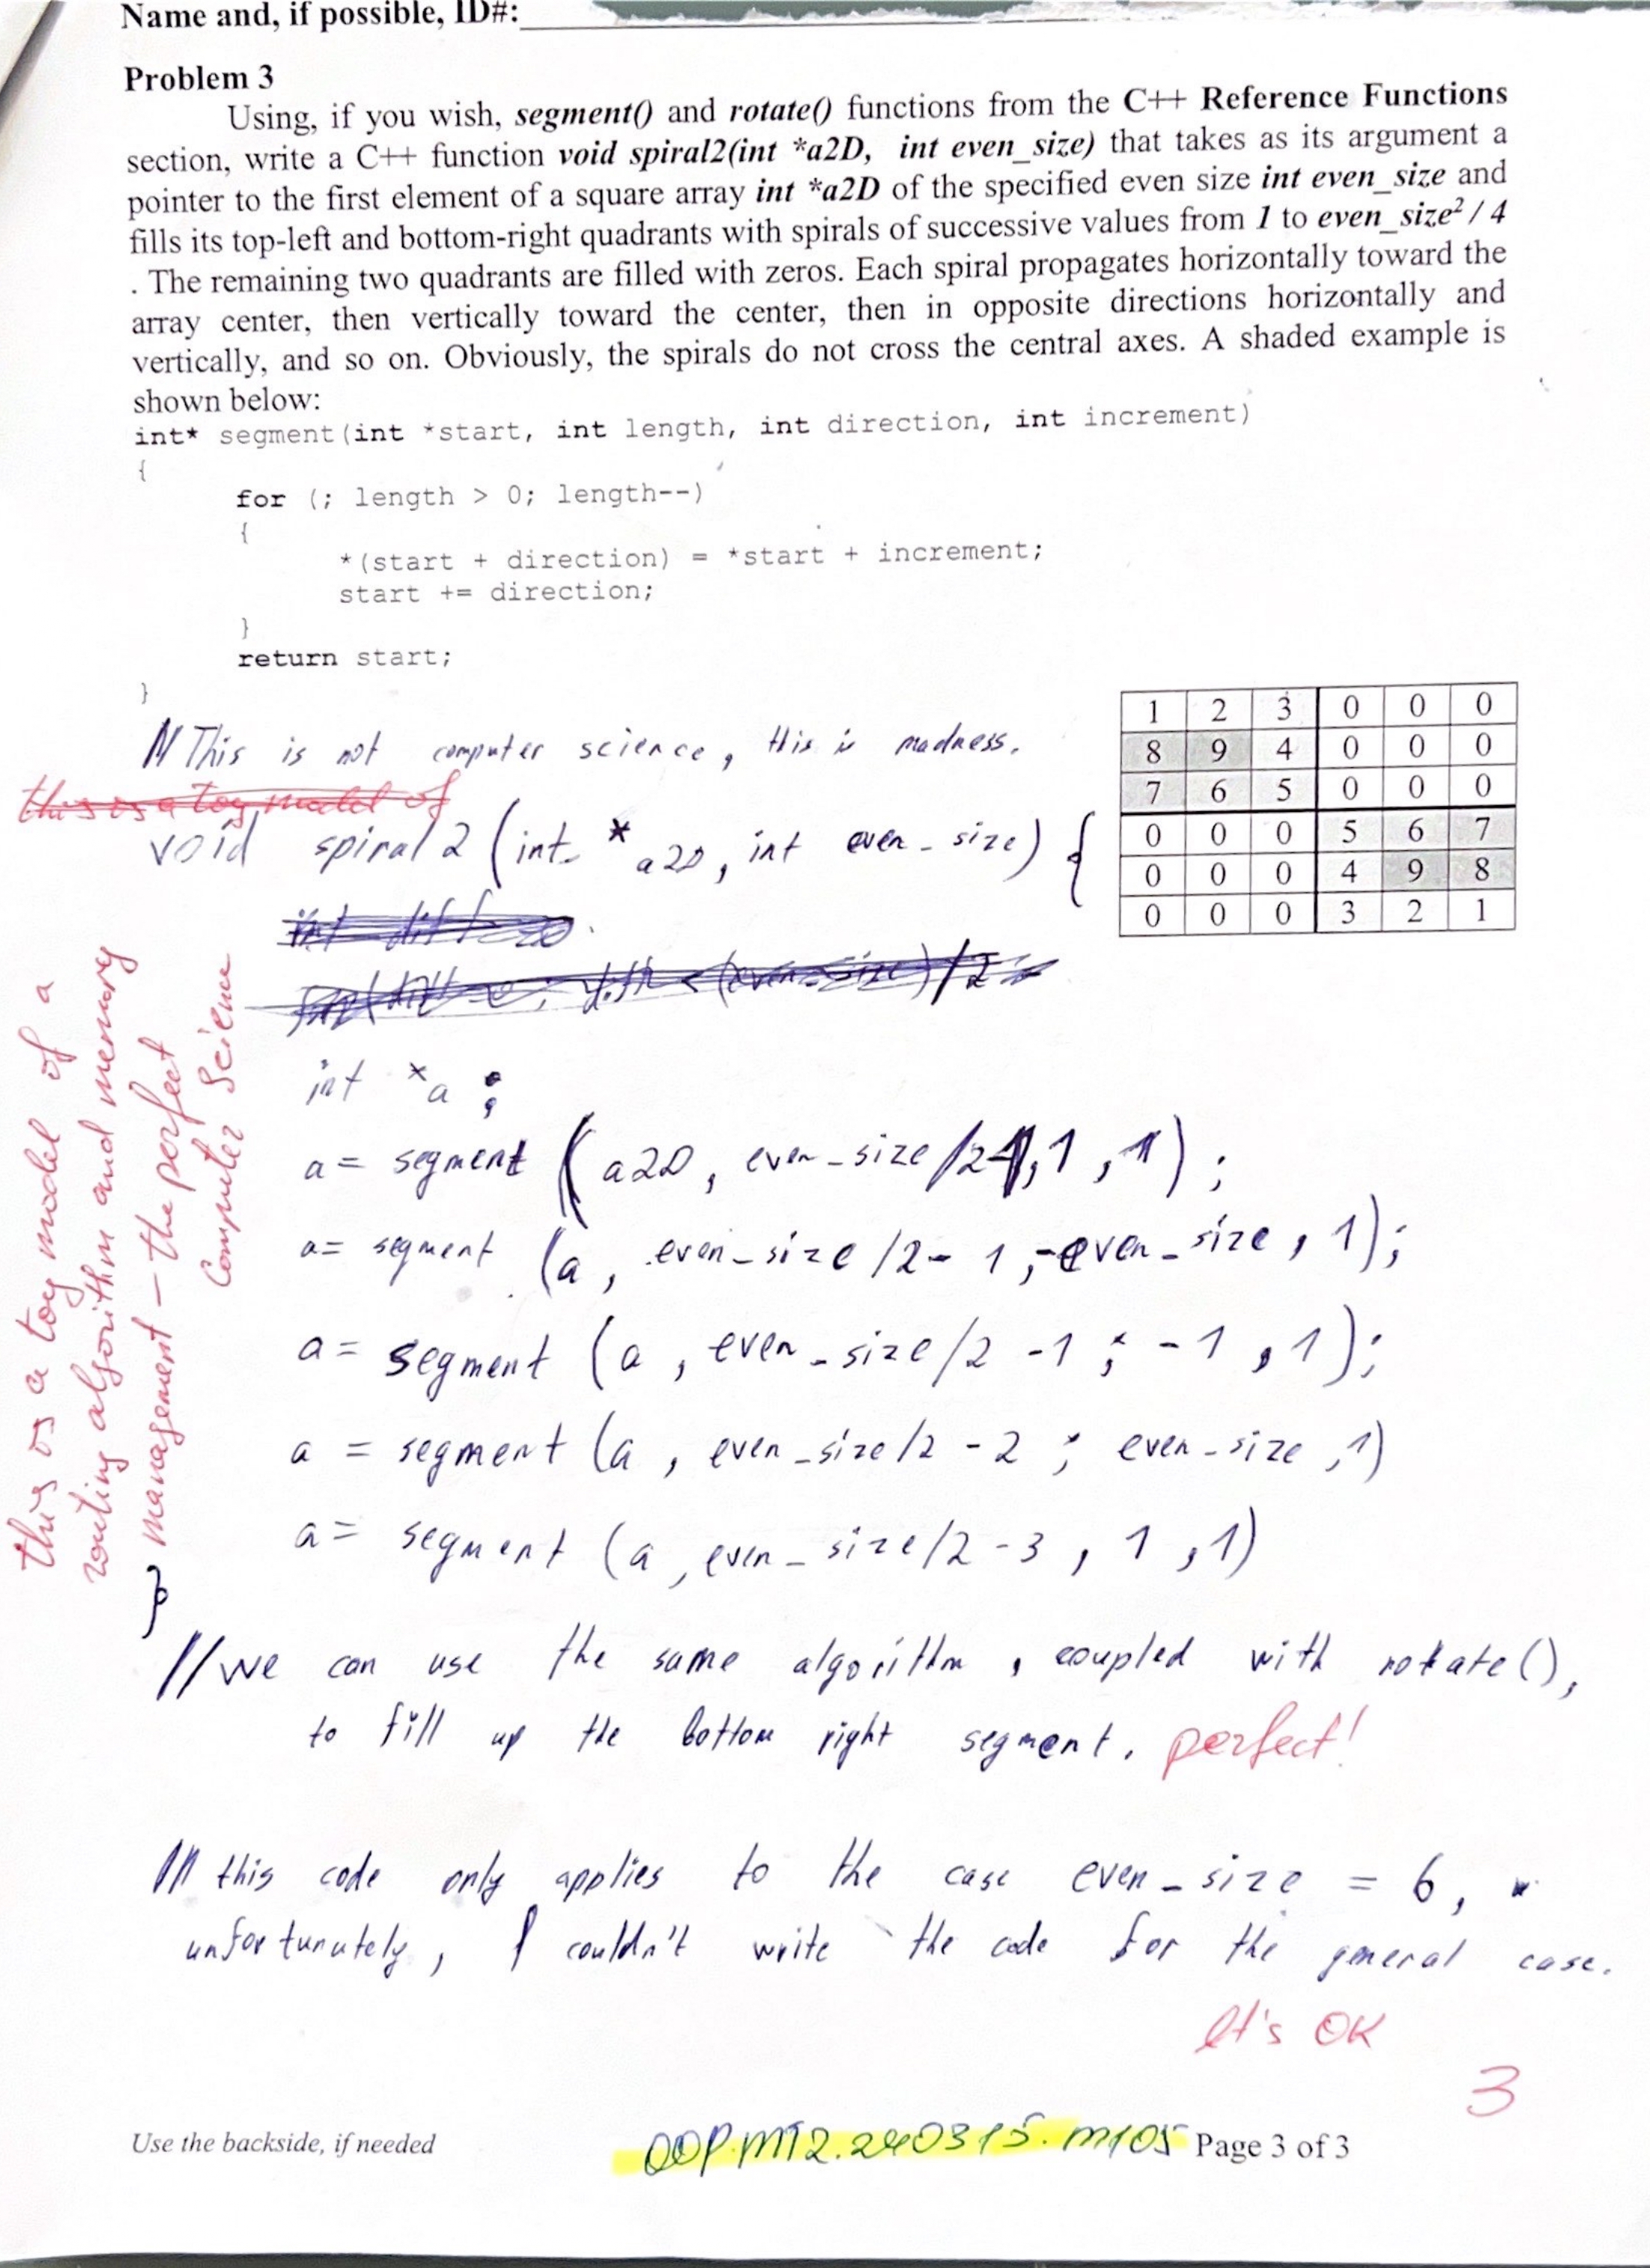 Name and, if possible, ID#:
Problem 3
Using, if you wish, segment() and rotate() functions from the C++ Reference Functions
section, write a C++ function void spiral2(int *a2D, int even_size) that takes as its argument a
pointer to the first element of a square array int *a2D of the specified even size int even_size and
fills its top-left and bottom-right quadrants with spirals of successive values from 1 to even_size² / 4
. The remaining two quadrants are filled with zeros. Each spiral propagates horizontally toward the
array center, then vertically toward the center, then in opposite directions horizontally and
vertically, and so on. Obviously, the spirals do not cross the central axes. A shaded example is
shown below:
int* segment(int *start, int length, int direction, int increment)
{
for (; length > 0; length--)
{
*(start + direction) = *start + increment;
start += direction;
}
return start;
}
1 2 3 0 0 0
8 9 4 0 0 0
7 6 5 0 0 0
0 0 0 5 6 7
0 0 0 4 9 8
0 0 0 3 2 1
// This is not computer science, this is madness.
this is a toy model of
void spiral2 (int *a2D, int even_size) {
int *a ;
a = segment (a2D, even_size/2-1, 1, 1);
a = segment (a, even_size/2-1, -even_size, 1);
a = segment (a, even_size/2 -1 ; -1 , 1);
a = segment (a, even_size/2 - 2 ; even_size, 1)
a = segment (a, even_size/2 - 3, 1, 1)
}
this is a toy model of a
routing algorithm and memory
management – the perfect
Computer Science
// we can use the same algorithm, coupled with rotate(),
to fill up the bottom right segment. perfect!
// this code only applies to the case even_size = 6,
unfortunately, I couldn't write the code for the general case.
It's OK
3
Use the backside, if needed
OOP.MT2.240315.M105 Page 3 of 3